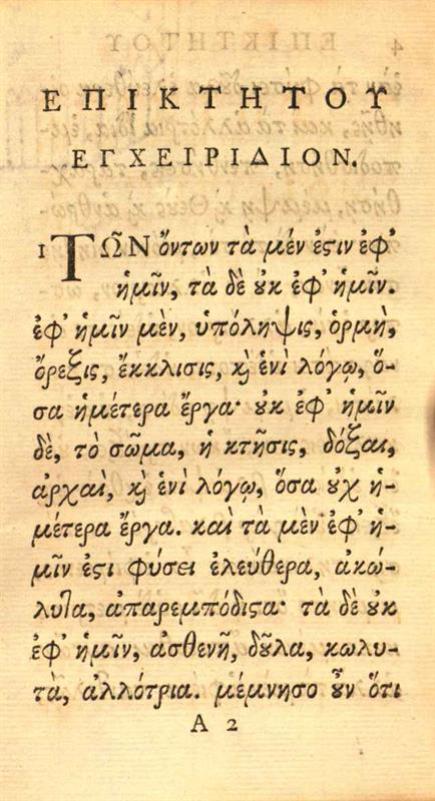 ΕΠΙΚΤΗΤΟΥ
ΕΓΧΕΙΡΙΔΙΟΝ.
1 ΤΩ͂Ν ὄντων τὰ μέν ἐϛιν ἐφ'
ἡμῖν, τὰ δὲ ȣκ ἐφ' ἡμῖν.
ἐφ' ἡμῖν μὲν, ὑπόληψις, ὁρμὴ,
ὄρεξις, ἔκκλισις, ϗ ἑνὶ λόγῳ, ὅ-
σα ἡμέτερα ἔργα· ȣκ ἐφ' ἡμῖν
δὲ, τὸ σῶμα, ἡ κτῆσις, δόξαι,
ἀρχαὶ, ϗ ἑνὶ λόγῳ, ὅσα ȣχ ἡ-
μέτερα ἔργα. καὶ τὰ μὲν ἐφ' ἡ-
μῖν ἐϛι φύσει ἐλεύθερα, ἀκώ-
λυτα, ἀπαρεμπόδιϛα· τὰ δὲ ȣκ
ἐφ' ἡμῖν, ἀσθενῆ, δȣ͂λα, κωλυ-
τὰ, ἀλλότρια. μέμνησο ȣ̓͂ν ὅτι
A 2